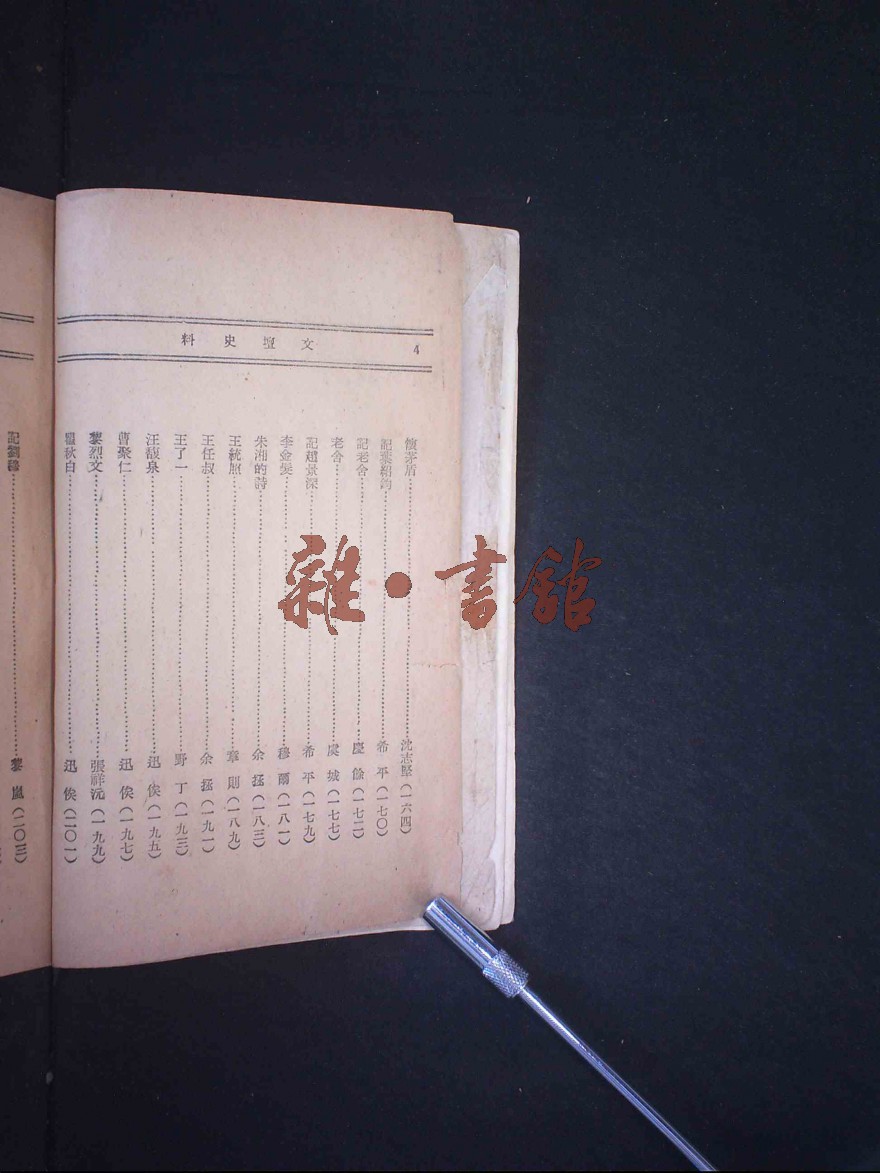 文壇史料
4
懷茅盾 沈志堅(一六四)
記葉紹鈞 希平(一七〇)
記老舍 慶餘(一七二)
老舍 虞城(一七七)
記趙景深 希平(一七九)
李金髮 穆爾(一八一)
朱湘的詩 余拯(一八三)
王統照 章則(一八九)
王任叔 余拯(一九一)
王了一 野丁(一九三)
汪馥泉 迅俟(一九五)
曹聚仁 迅俟(一九七)
黎烈文 張祥沅(一九九)
瞿秋白 迅俟(二〇一)
黎嵐(二〇三)
雜·書館